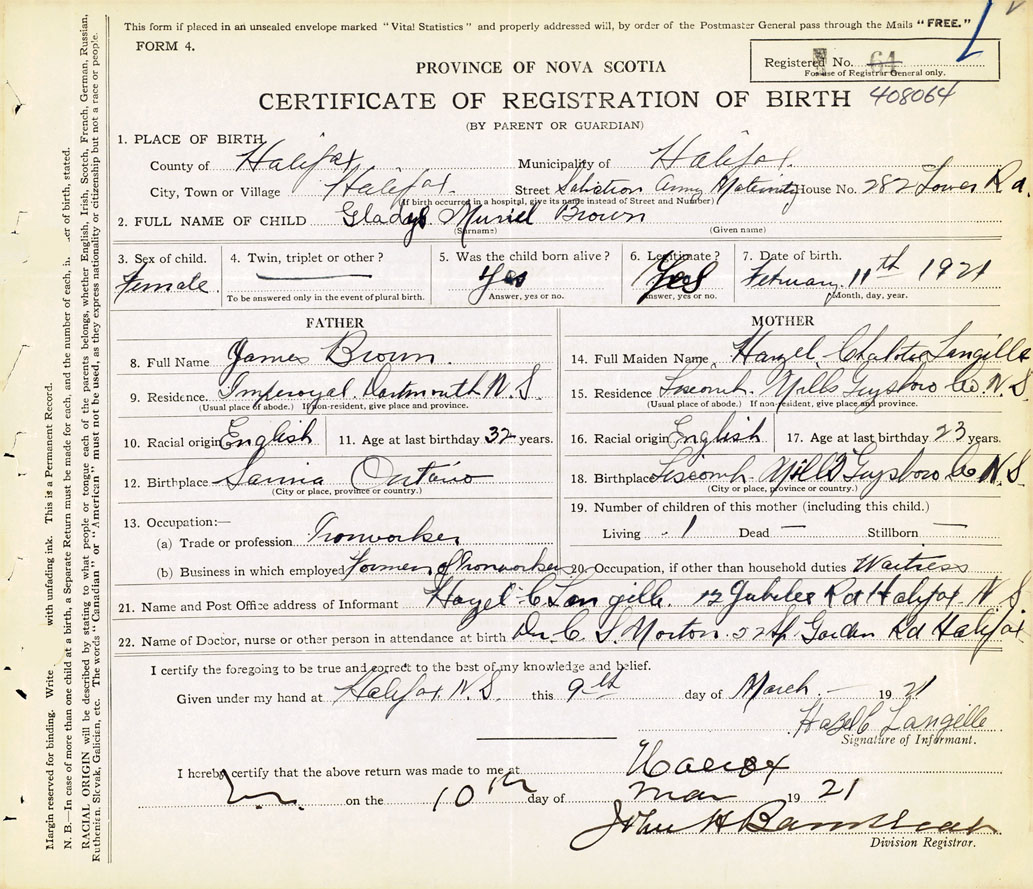 This form if placed in an unsealed envelope marked "Vital Statistics" and properly addressed will, by order of the Postmaster General pass through the Mails "FREE."
FORM 4.
Registered No. 64
For use of Registrar General only.
PROVINCE OF NOVA SCOTIA
CERTIFICATE OF REGISTRATION OF BIRTH 408064
(BY PARENT OR GUARDIAN)
1. PLACE OF BIRTH
County of Halifax Municipality of Halifax.
City, Town or Village Halifax. Street Salvation Army Maternity House No. 282 Tower Rd
(If birth occurred in a hospital, give its name instead of Street and Number)
2. FULL NAME OF CHILD Gladys Muriel Brown
(Surname) (Given name)
3. Sex of child. 4. Twin, triplet or other? 5. Was the child born alive? 6. Legitimate? 7. Date of birth.
Female. Yes Yes February 11th 1921
To be answered only in the event of plural birth. Answer, yes or no. Answer, yes or no. Month, day, year.
FATHER MOTHER
8. Full Name James Brown. 14. Full Maiden Name Hazel Langille
9. Residence. Imperoyal. Dartmouth N.S. 15. Residence Liscomb Mills Guysboro Co. N.S
(Usual place of abode.) If non-resident, give place and province. (Usual place of abode.) If non-resident, give place and province.
10. Racial origin English 11. Age at last birthday 32 years. 16. Racial origin English 17. Age at last birthday 23 years.
12. Birthplace Sarnia Ontario 18. Birthplace Liscomb Mills Guysboro Co N.S.
(City or place, province or country.) (City or place, province or country.)
13. Occupation:— 19. Number of children of this mother (including this child.)
(a) Trade or profession Ironworker Living 1 Dead — Stillborn —
(b) Business in which employed Foreman of Ironworkers 20. Occupation, if other than household duties Waitress
21. Name and Post Office address of Informant Hazel C Langille 12 Jubilee Rd Halifax N.S.
22. Name of Doctor, nurse or other person in attendance at birth Dr. C S Morton Garden Rd Halifax
I certify the foregoing to be true and correct to the best of my knowledge and belief.
Given under my hand at Halifax N.S. this 9th day of March. 1921
Hazel C Langille
Signature of Informant.
I hereby certify that the above return was made to me at Halifax
on the 10th day of Mar 1921
John H
Division Registrar.
Margin reserved for binding. Write with unfading ink. This is a Permanent Record.
N. B.—In case of more than one child at a birth, a Separate Return must be made for each, and the number of each, in order of birth, stated.
RACIAL ORIGIN will be described by stating to what people or tongue each of the parents belongs, whether English, Irish, Scotch, French, German, Russian,
Ruthenian, Slovak, Galician, etc. The words "Canadian" or "American" must not be used, as they express nationality or citizenship but not a race or people.